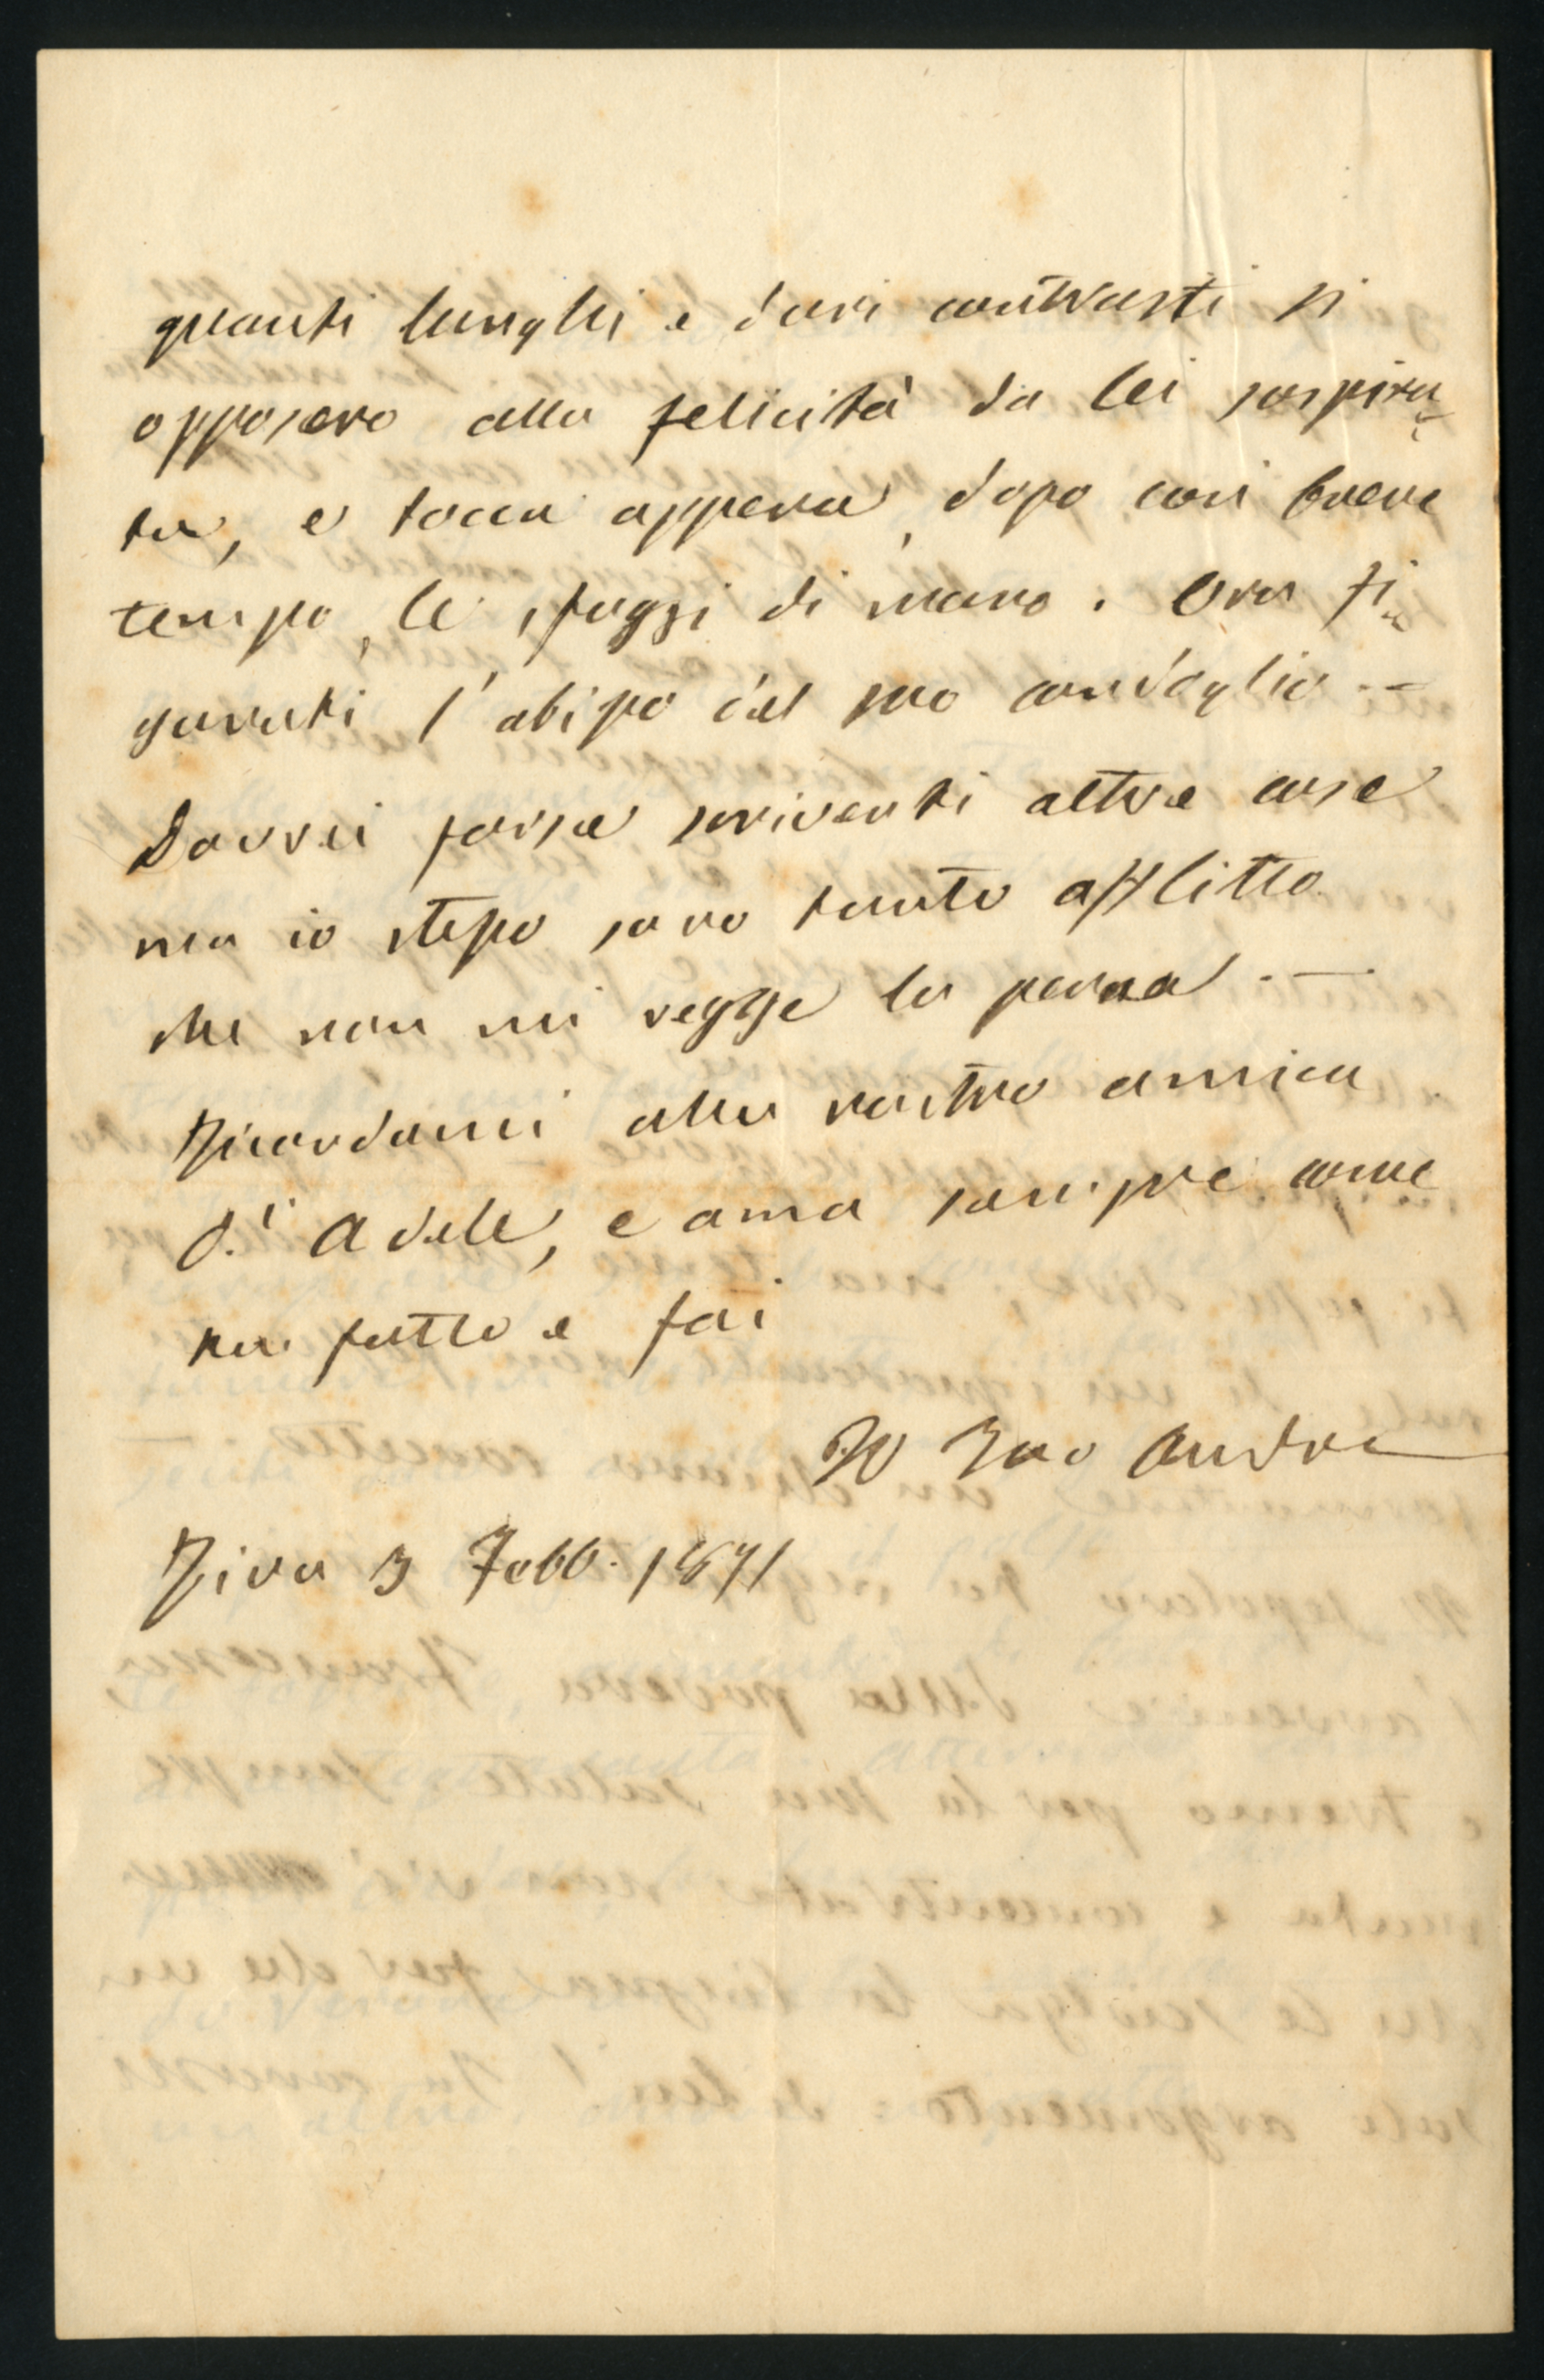 quanti lunghi e duri contrasti si
opposero alla felicità da lei sospira-
ta, e tocca appena, dopo così breve
tempo, le sfuggì di mano. Ora fi-
gurati l'abisso del suo cordoglio. —
Dovrei forse scriverti altre cose
ma io stesso sono tanto afflitto
che non mi regge la penna. —
Ricordami alla nostra amica
S.ra Adele, e ama sempre come
hai fatto e fai
Il Tuo Andrea
Riva 3 Febb. 1871